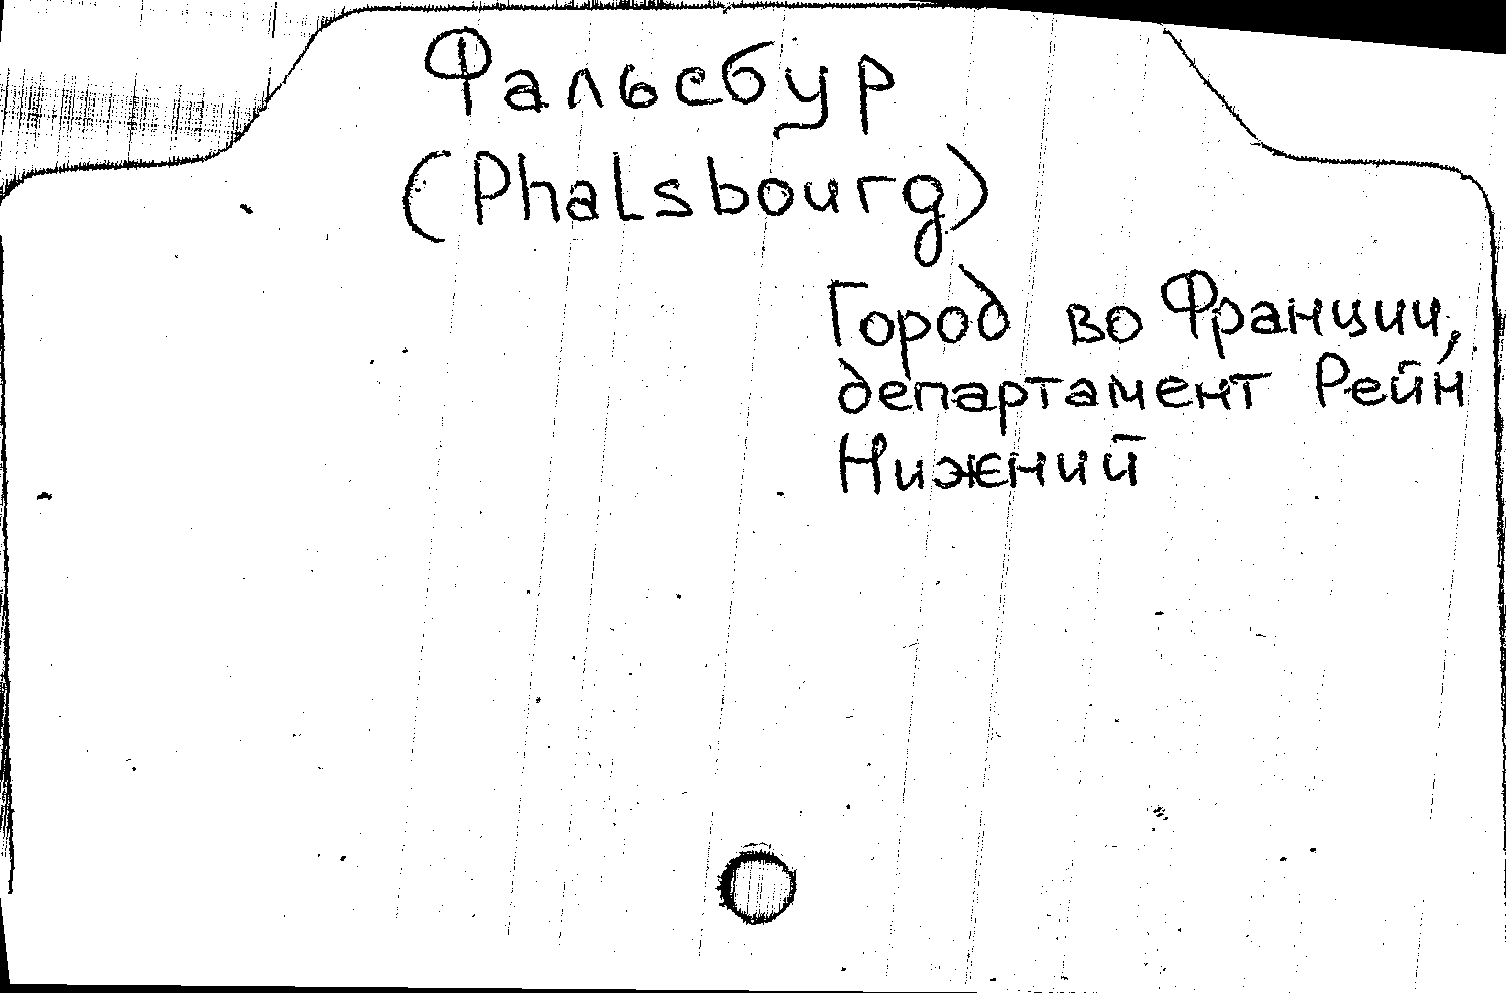 Фальсбур
(Phalsbourg)
Город во Франции,
департамент Рейн
Нижний